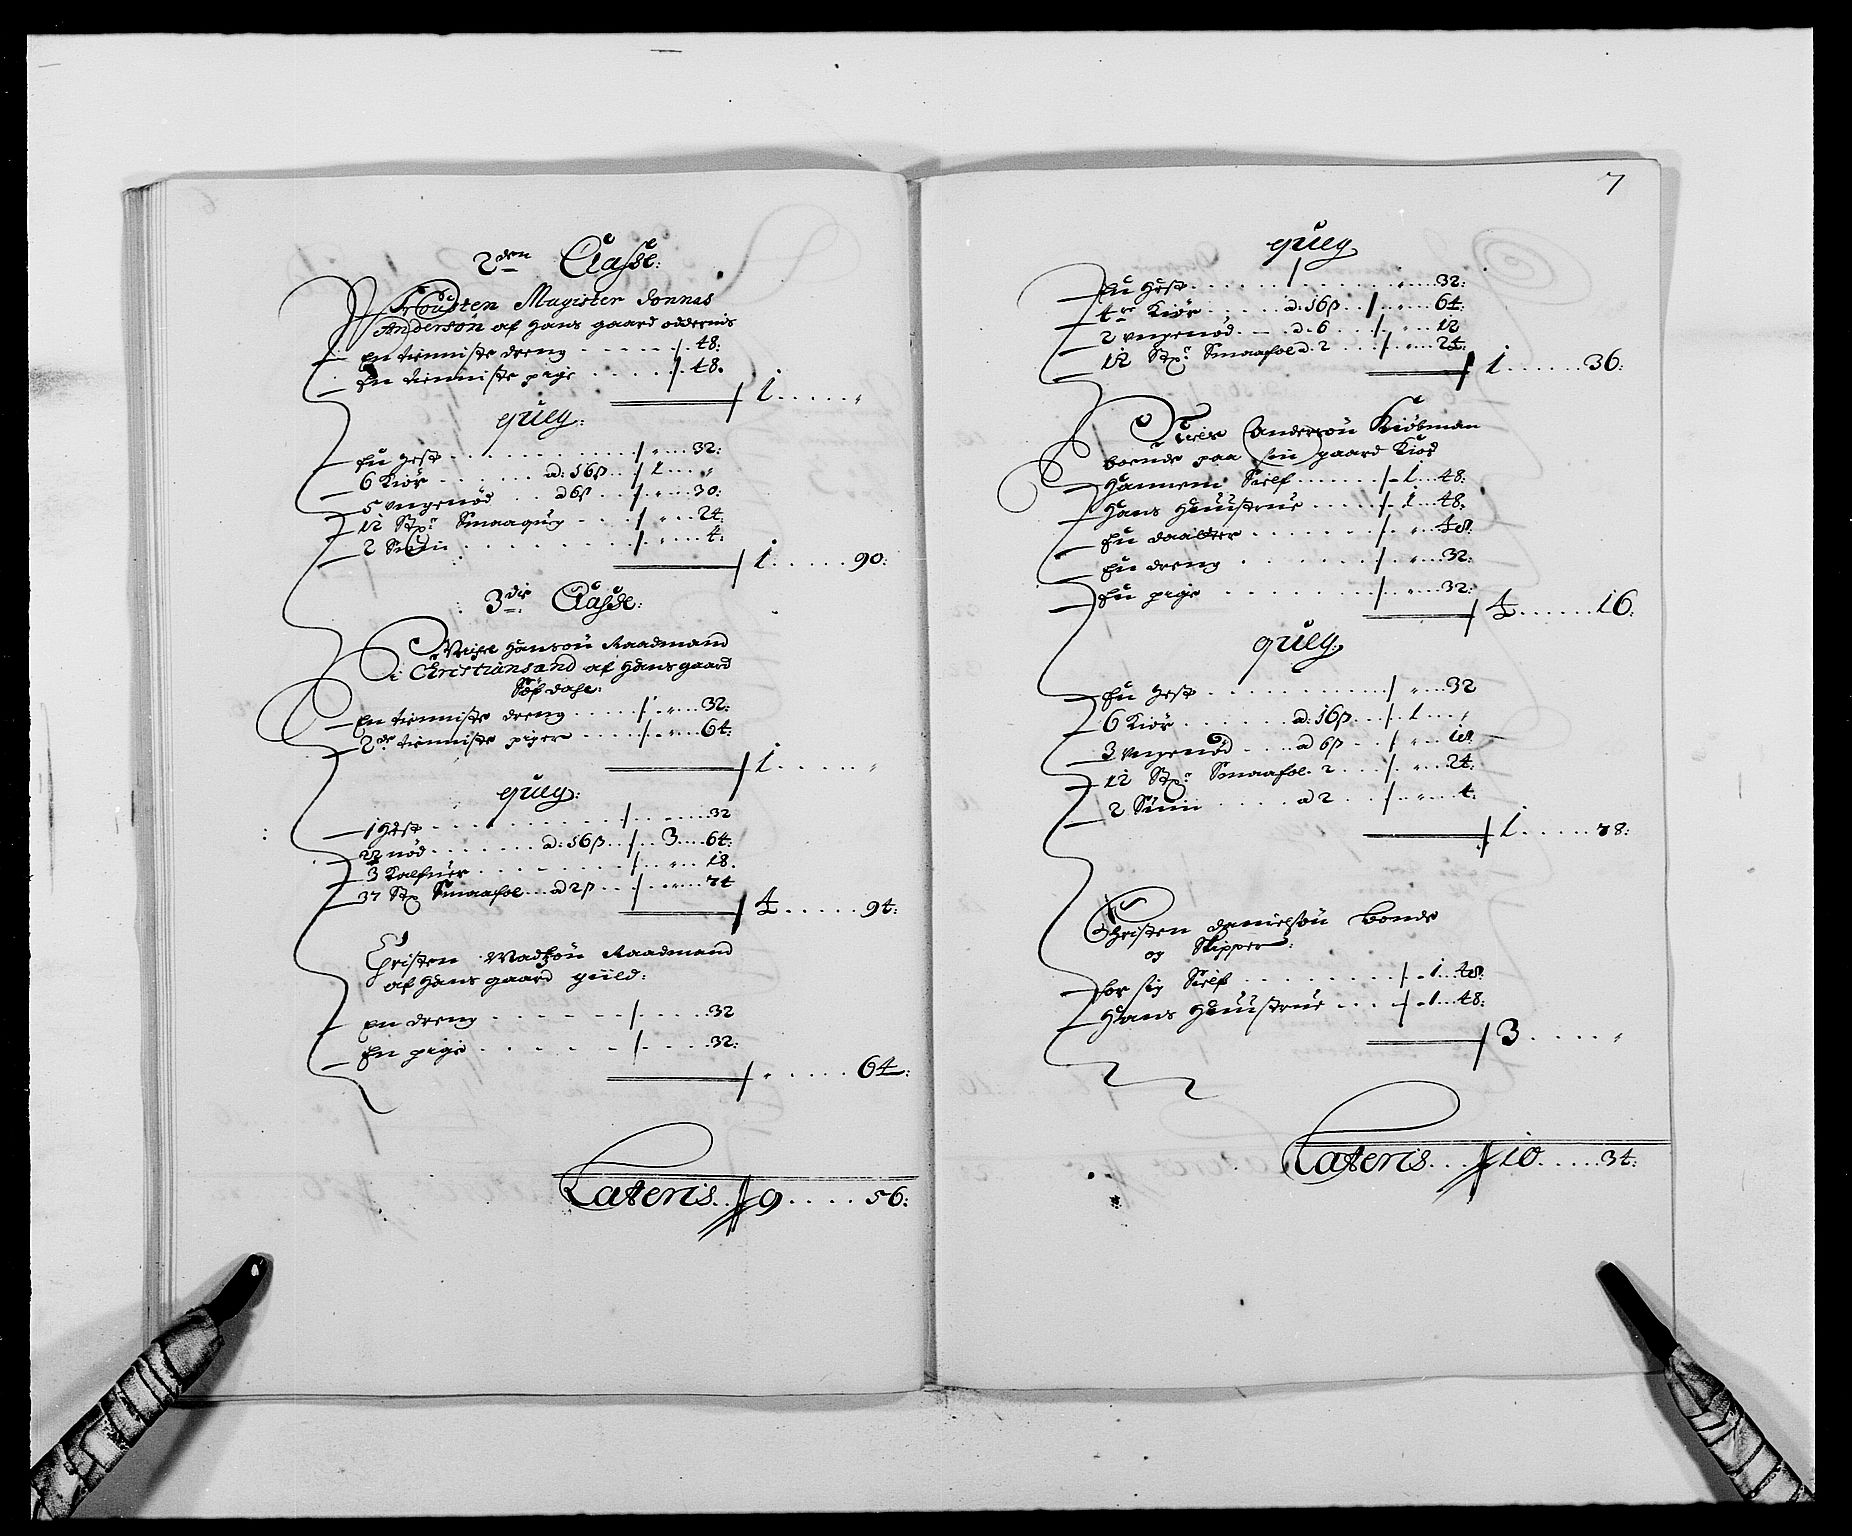 2den Classe:
Prousten Magister Jonnas
Andersøn af Hans gaard oddernis
En tienniste dreng - - - - - / . 48:
En tienniste pige . . . . . / . 48.
/ 1 . . . . . "
queg:
En Hest . . . . . . . . / " . . . 32:
6 Kiør . . . . . . ad: 16ß . . / 1 . . . "
5 ungenød . . ad 6ß . . / " . . . 30:
12 Stxr Smaaqueg . . . / " . . . 24:
2 Suin . . . . . . . . . / " . . . . 4:
/ 1 . . . . . 90:
3die Classe:
Hansøn Raadmand
i Christiansand af Hans gaard
Søfdahl:
En tienniste dreng . . . . . / . " . . . 32:
2de tienniste piger . . . . . / . " . . . 64:
/ 1 . . . . . "
queg:
1 Hest . . . . . . . . . . / . . . . . . 32
22 nød . . . . . . . ad: 16ß . . / . . 3 . . . . 64:
3 Kalfuer . . . . . . . . . / . . " . . . 18.
37 Stx Smaafoe . . . ad 2ß . . . / . . " . . . 74
/ 4 . . . . . 94:
Christen Madsøn Raadmand
af Hans gaard giild:
En dreng . . . . . . / . . . . . 32
En pige . . . . . . / . . . . . 32:
/ " . . . . . 64:
Lateris . . 9 . . . . . 56:
7
queg
En Hest . . . . . . . . . . . " . . . 32:
4re Kiør . . . . . ad: 16ß . . / . . " . . . 64:
2 ungenød . . . ad. 6 . . . / . . " . . . 12
12 Stxr Smaafoe ad 2 . . . / . . " . . . 24:
/ 1 . . . . . . 36:
Andersøn Kiøbmand
boende paa sin gaard Kiøs
Hannem Self . . . . . . / . 1 . . . 48:
Hans Heuustrue . . . . . / . 1 . . . 48:
En daatter . . . . . . . / . . " . . 48
En dreng . . . . . . . / . . " . . . 32:
En pige . . . . . . . / . . " . . . 32:
/ 4 . . . . . . 16:
queg:
En Hest . . . . . . . . . . / " . . . 32
6 Kiør . . . . . . ad: 16ß . . . / . 1 . . . "
3 ungenød . . . . ad 6ß . . . / " . . . 18
12 Stxr Smaafoe . 2 . . . / . . " . . . 24:
2 Suin . . . . . ad 2 . . . / . . " . . . . 4:
/ 1 . . . . . 78:
Christen Danielsøn Bonde
og Skipper:
for sig Self . . . . . . . . / . . 1 . . . 48:
Hans Heuustrue . . . . / . . 1 . . . 48:
/ 3 . . . . . "
Lateris . . . 10 . . . . . 34: